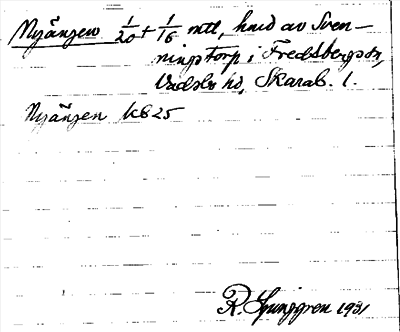 Nyängen 1/20 + 1/16 mtl, hmd av Sven-
ningstorp i Fredsbergs sn,
Vadsbo hd, Skarab. l.
Nyängen KB 25
R. Ljunggren 1931